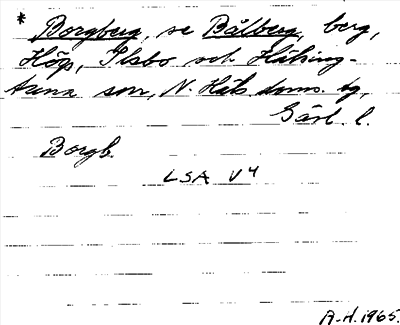 * Borgberg, se Bålberg, berg,
Hög, Ilsbo och Hälsing-
tuna snr, N. Häls. doms. tg,
Gävl. l.
Borgb.
LSA V4
A.H. 1965.